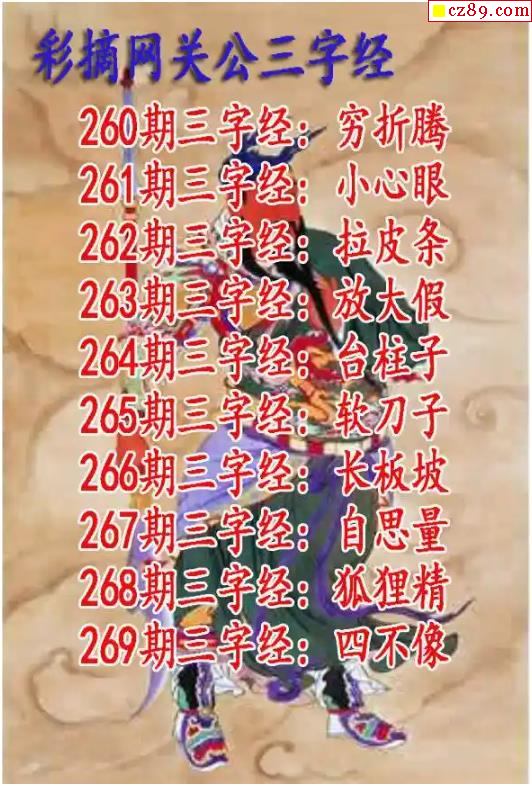 cz89.com
彩摘网关公三字经
260期三字经：穷折腾
261期三字经：小心眼
262期三字经：拉皮条
263期三字经：放大假
264期三字经：台柱子
265期三字经：软刀子
266期三字经：长板坡
267期三字经：自思量
268期三字经：狐狸精
269期三字经：四不像